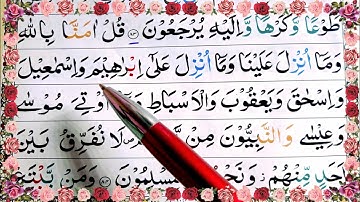 طَوْعًا وَّكَرْهًا وَّاِلَيْهِ يُرْجَعُوْنَ ﴿۸۳﴾ قُلْ اٰمَنَّا بِاللّٰهِ
وَمَاۤ اُنْزِلَ عَلَيْنَا وَمَاۤ اُنْزِلَ عَلٰۤى اِبْرٰهِيْمَ وَاِسْمٰعِيْلَ
وَاِسْحٰقَ وَيَعْقُوْبَ وَالْاَسْبَاطِ اُوْتِىَ مُوْسٰى
وَعِيْسٰى وَالنَّبِيُّوْنَ مِنْ لَا نُفَرِّقُ بَيْنَ
اَحَدٍ مِّنْهُمْ وَنَحْنُ مُسْلِمُوْنَ ﴿۸۴﴾ وَمَنْ يَّبْتَغِ